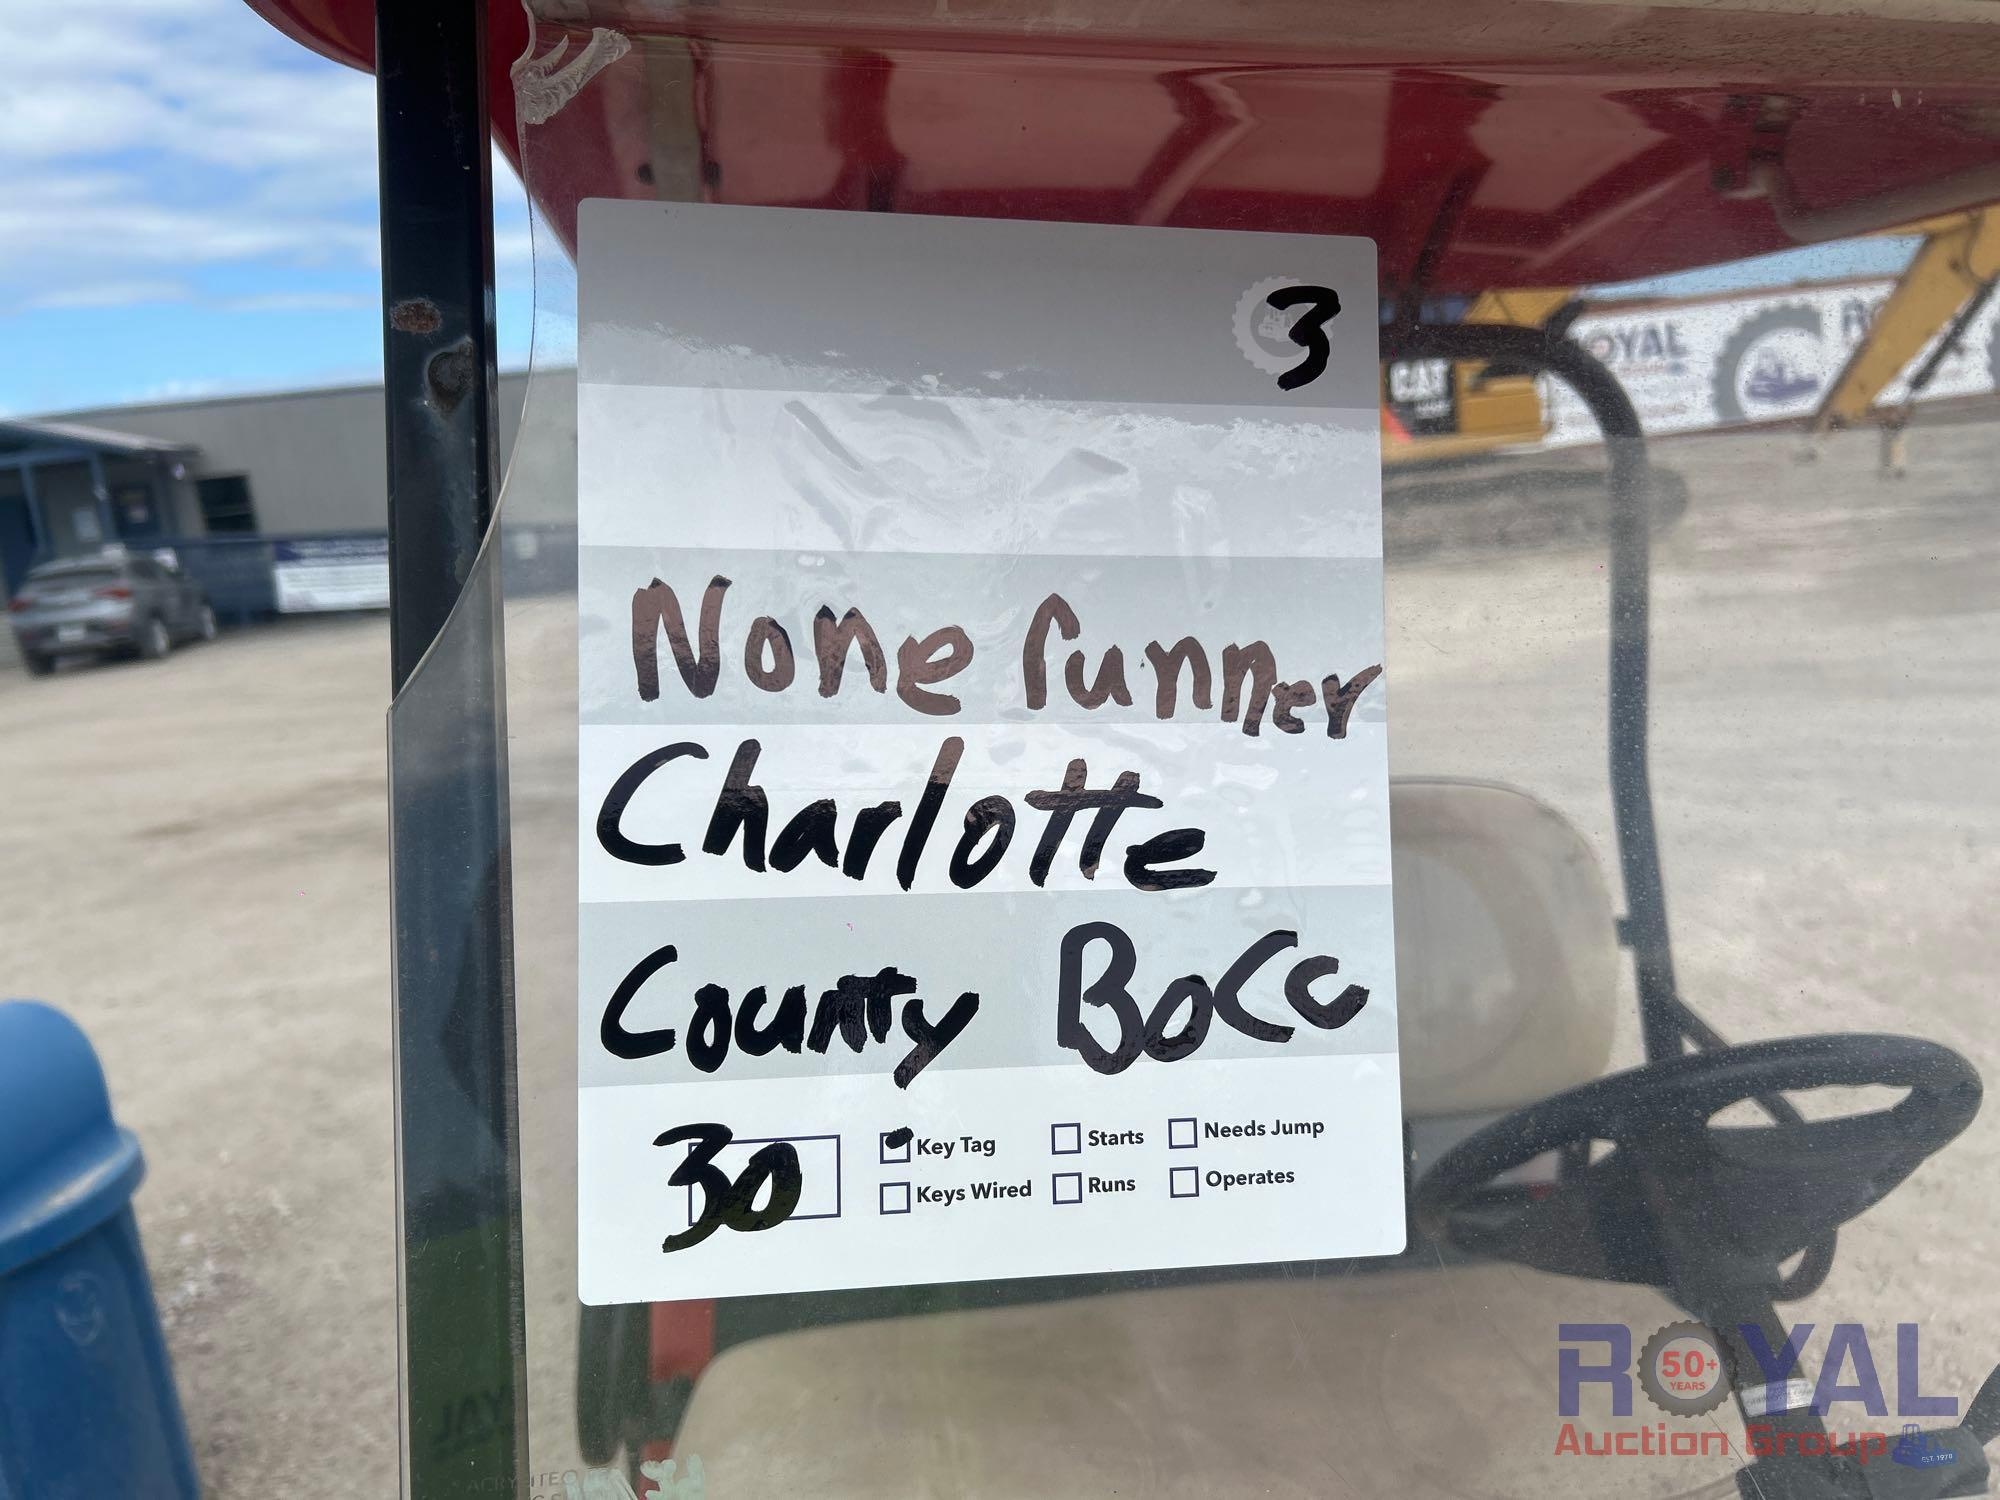 3
None runner
Charlotte
County BoCC
30
Key Tag
Starts
Needs Jump
Keys Wired
Runs
Operates
CAT
ROYAL
JAY
ROYAL
50+
YEARS
Auction Group
EST. 1970